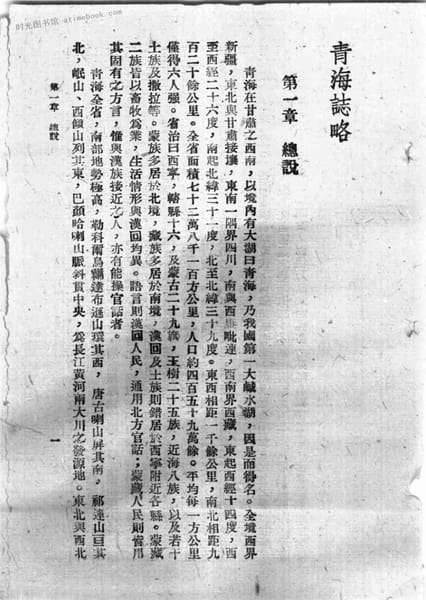 时光图书馆 · atimebook.com
青海誌略
第一章 總說
青海在甘肅之西南，以境內有大湖曰青海，乃我國第一大鹹水湖，因是而得名。全境西界
新疆，東北與甘肅接壤，東南一隅界四川，南與西康毗連，西南界西藏，東起西經十四度，西
至西經二十六度，南起北緯三十一度，北至北緯三十九度。東西相距一千餘公里，南北相距九
百二十餘公里。全省面積七十二萬八千一百方公里，人口約四百五十九萬餘。平均每一方公里
僅得六人强。省治曰西寧，轄縣十六，及蒙古二十九旗，玉樹二十五族，近海八族，以及若干
土族及撒拉等。蒙族多居於北境，藏族多居於南境，漢回及土族則錯居於西寧附近各縣。蒙藏
二族皆以畜牧爲業，生活情形與漢回均異。語言則漢回人民，通用北方官話；蒙藏人民則皆用
其固有之方言，惟與漢族接近之人，亦有能操官話者。
青海全省，南部地勢極高，勒科爾烏蘭達布遜山環其西，唐古喇山屏其南，祁連山亘其
北，岷山、西傾山列其東，巴顏哈喇山脈斜貫中央，爲長江黃河兩大川之發源地。東北與西北
第一章 總說
一